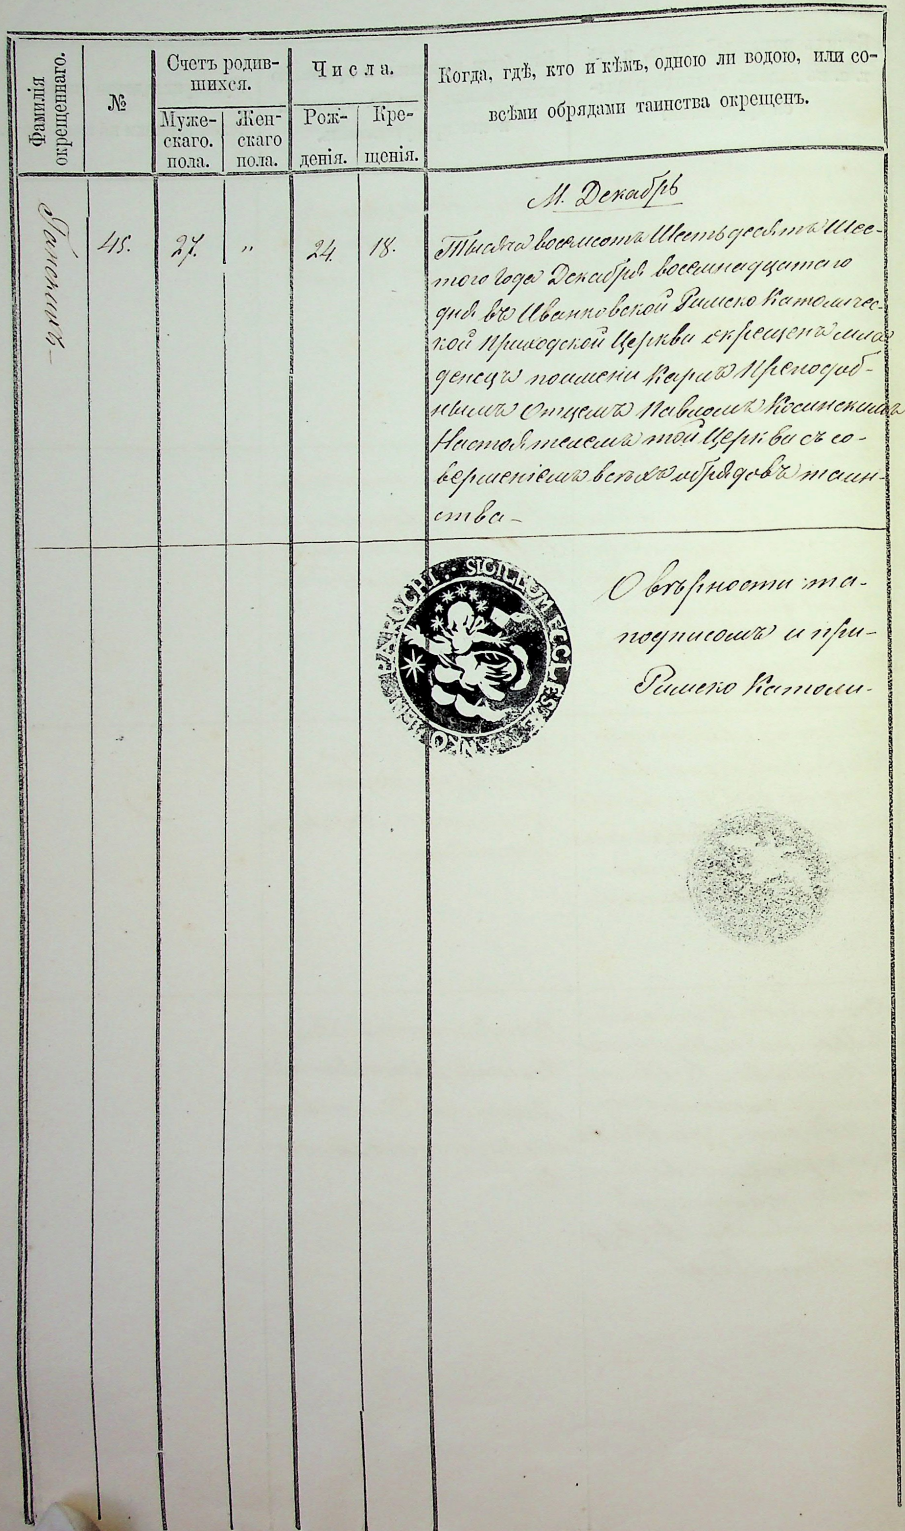 Фамилія окрещеннаго.
№
Счетъ родив-
шихся.
Муже-
скаго.
пола.
Жен-
скаго
пола.
Числа.
Рож-
денія.
Кре-
щенія.
Когда, гдѣ, кто и кѣмъ, одною ли водою, или со-
всѣми обрядами таинства окрещенъ.
М. Декабрь
45.
27.
"
24.
18.
Тысяча восемсотъ Шестьдесятъ Шес-
того Года Декабря восемнадцатаго
дня въ Иванковской Римско Католичес-
кой Приходской Церкви окрещенъ мла
денецъ поимени Карлъ Преподоб-
нымъ Отцемъ Павломъ Косинскимъ
Настоятелемъ той Церкви съ со-
вершеніемъ всѣхъ обрядовъ таин-
ства
О вѣрности та-
подписомъ и при-
Римско Католи-
SIGILLUM ECCLES